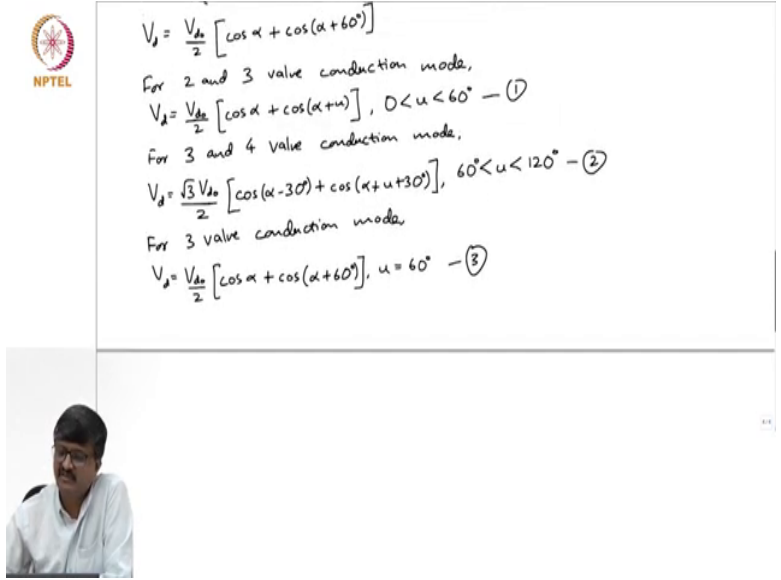 V_d = V_do/2 [cos α + cos(α + 60°)]
NPTEL
For 2 and 3 valve conduction mode,
V_d = V_do/2 [cos α + cos(α+u)], 0 < u < 60° — ①
For 3 and 4 valve conduction mode,
V_d = √3 V_do/2 [cos(α-30°) + cos(α+u+30°)], 60° < u < 120° — ②
For 3 valve conduction mode,
V_d = V_do/2 [cos α + cos(α+60°)], u = 60° — ③